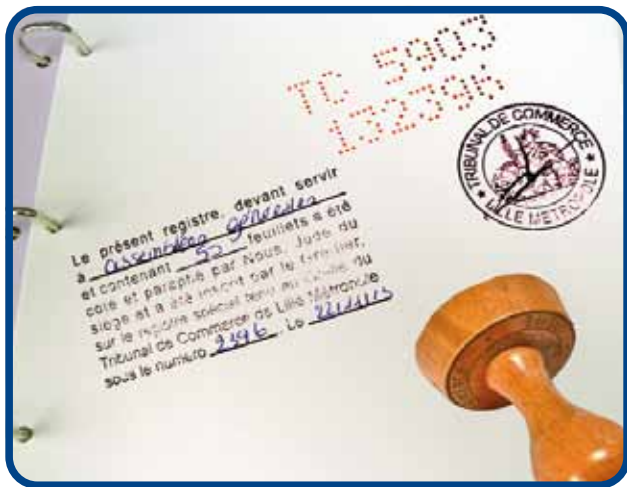 TC 5903
132396
TRIBUNAL DE COMMERCE
LILLE METROPOLE
Le présent registre, devant servir
à assemblées générales
et contenant 50 feuillets a été
coté et paraphé par Nous, Juge du
siège et a été inscrit par le greffier,
sur le registre spécial tenu au Greffe du
Tribunal de Commerce de Lille Métropole
sous le numéro 2396. Le 22/11/13